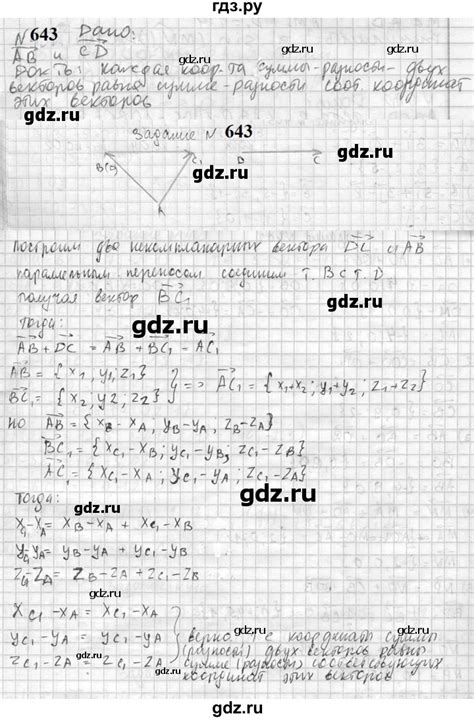 гдз.ру
N 643 Дано:
AB и CD
Док-ть: каждая коор-та суммы-разности-двух
векторов равна сумме-разности соот. координат
этих векторов
gdz.ru
Задание N 643
B(D) C₁ D C
gdz.ru
A
Построим два некомпланарных вектора DC и AB
параллельным переносом соединим т. B с т. D
получая вектор BC₁
gdz.ru
Тогда:
AB + DC = AB + BC₁ = AC₁
AB = {x₁, y₁; z₁}
BC₁ = {x₂; y₂; z₂} } => AC₁ = {x₁+x₂; y₁+y₂; z₁+z₂}
gdz.ru
но AB = {x_B - x_A, y_B - y_A, z_B - z_A}
BC₁ = {x_C₁ - x_B; y_C₁ - y_B; z_C₁ - z_B}
AC₁ = {x_C₁ - x_A; y_C₁ - y_A, z_C₁ - z_A}
gdz.ru
Тогда:
x_C₁ - x_A = x_B - x_A + x_C₁ - x_B
y_C₁ - y_A = y_B - y_A + y_C₁ - y_B
z_C₁ - z_A = z_B - z_A + z_C₁ - z_B
gdz.ru
x_C₁ - x_A = x_C₁ - x_A
y_C₁ - y_A = y_C₁ - y_A
z_C₁ - z_A = z_C₁ - z_A
верно, т.е координаты суммы
(разности) двух векторов равны
сумме (разности) соответствующих
координат этих векторов
gdz.ru